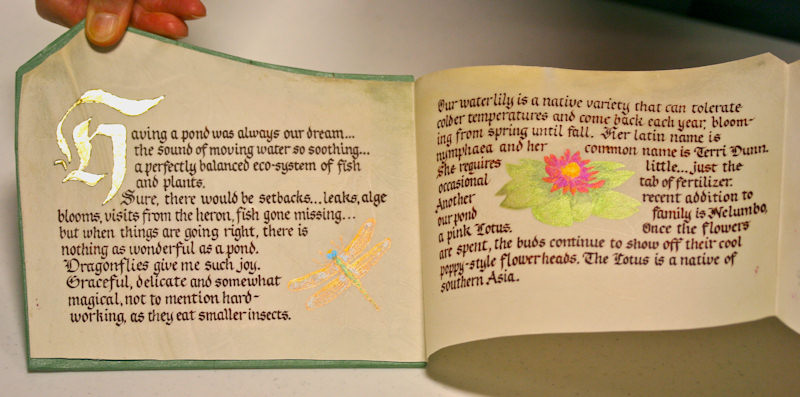 Having a pond was always our dream...
the sound of moving water so soothing...
a perfectly balanced eco-system of fish
and plants.
Sure, there would be setbacks...leaks, alge
blooms, visits from the heron, fish gone missing...
but when things are going right, there is
nothing as wonderful as a pond.
Dragonflies give me such joy.
Graceful, delicate and somewhat
magical, not to mention hard-
working, as they eat smaller insects.
Our waterlily is a native variety that can tolerate
colder temperatures and come back each year, bloom-
ing from spring until fall. Her latin name is
nymphaea and her common name is Terri Dunn.
She requires little...just the
occasional tab of fertilizer.
Another recent addition to
our pond family is Nelumbo,
a pink Lotus. Once the flowers
are spent, the buds continue to show off their cool
poppy-style flowerheads. The Lotus is a native of
southern Asia.